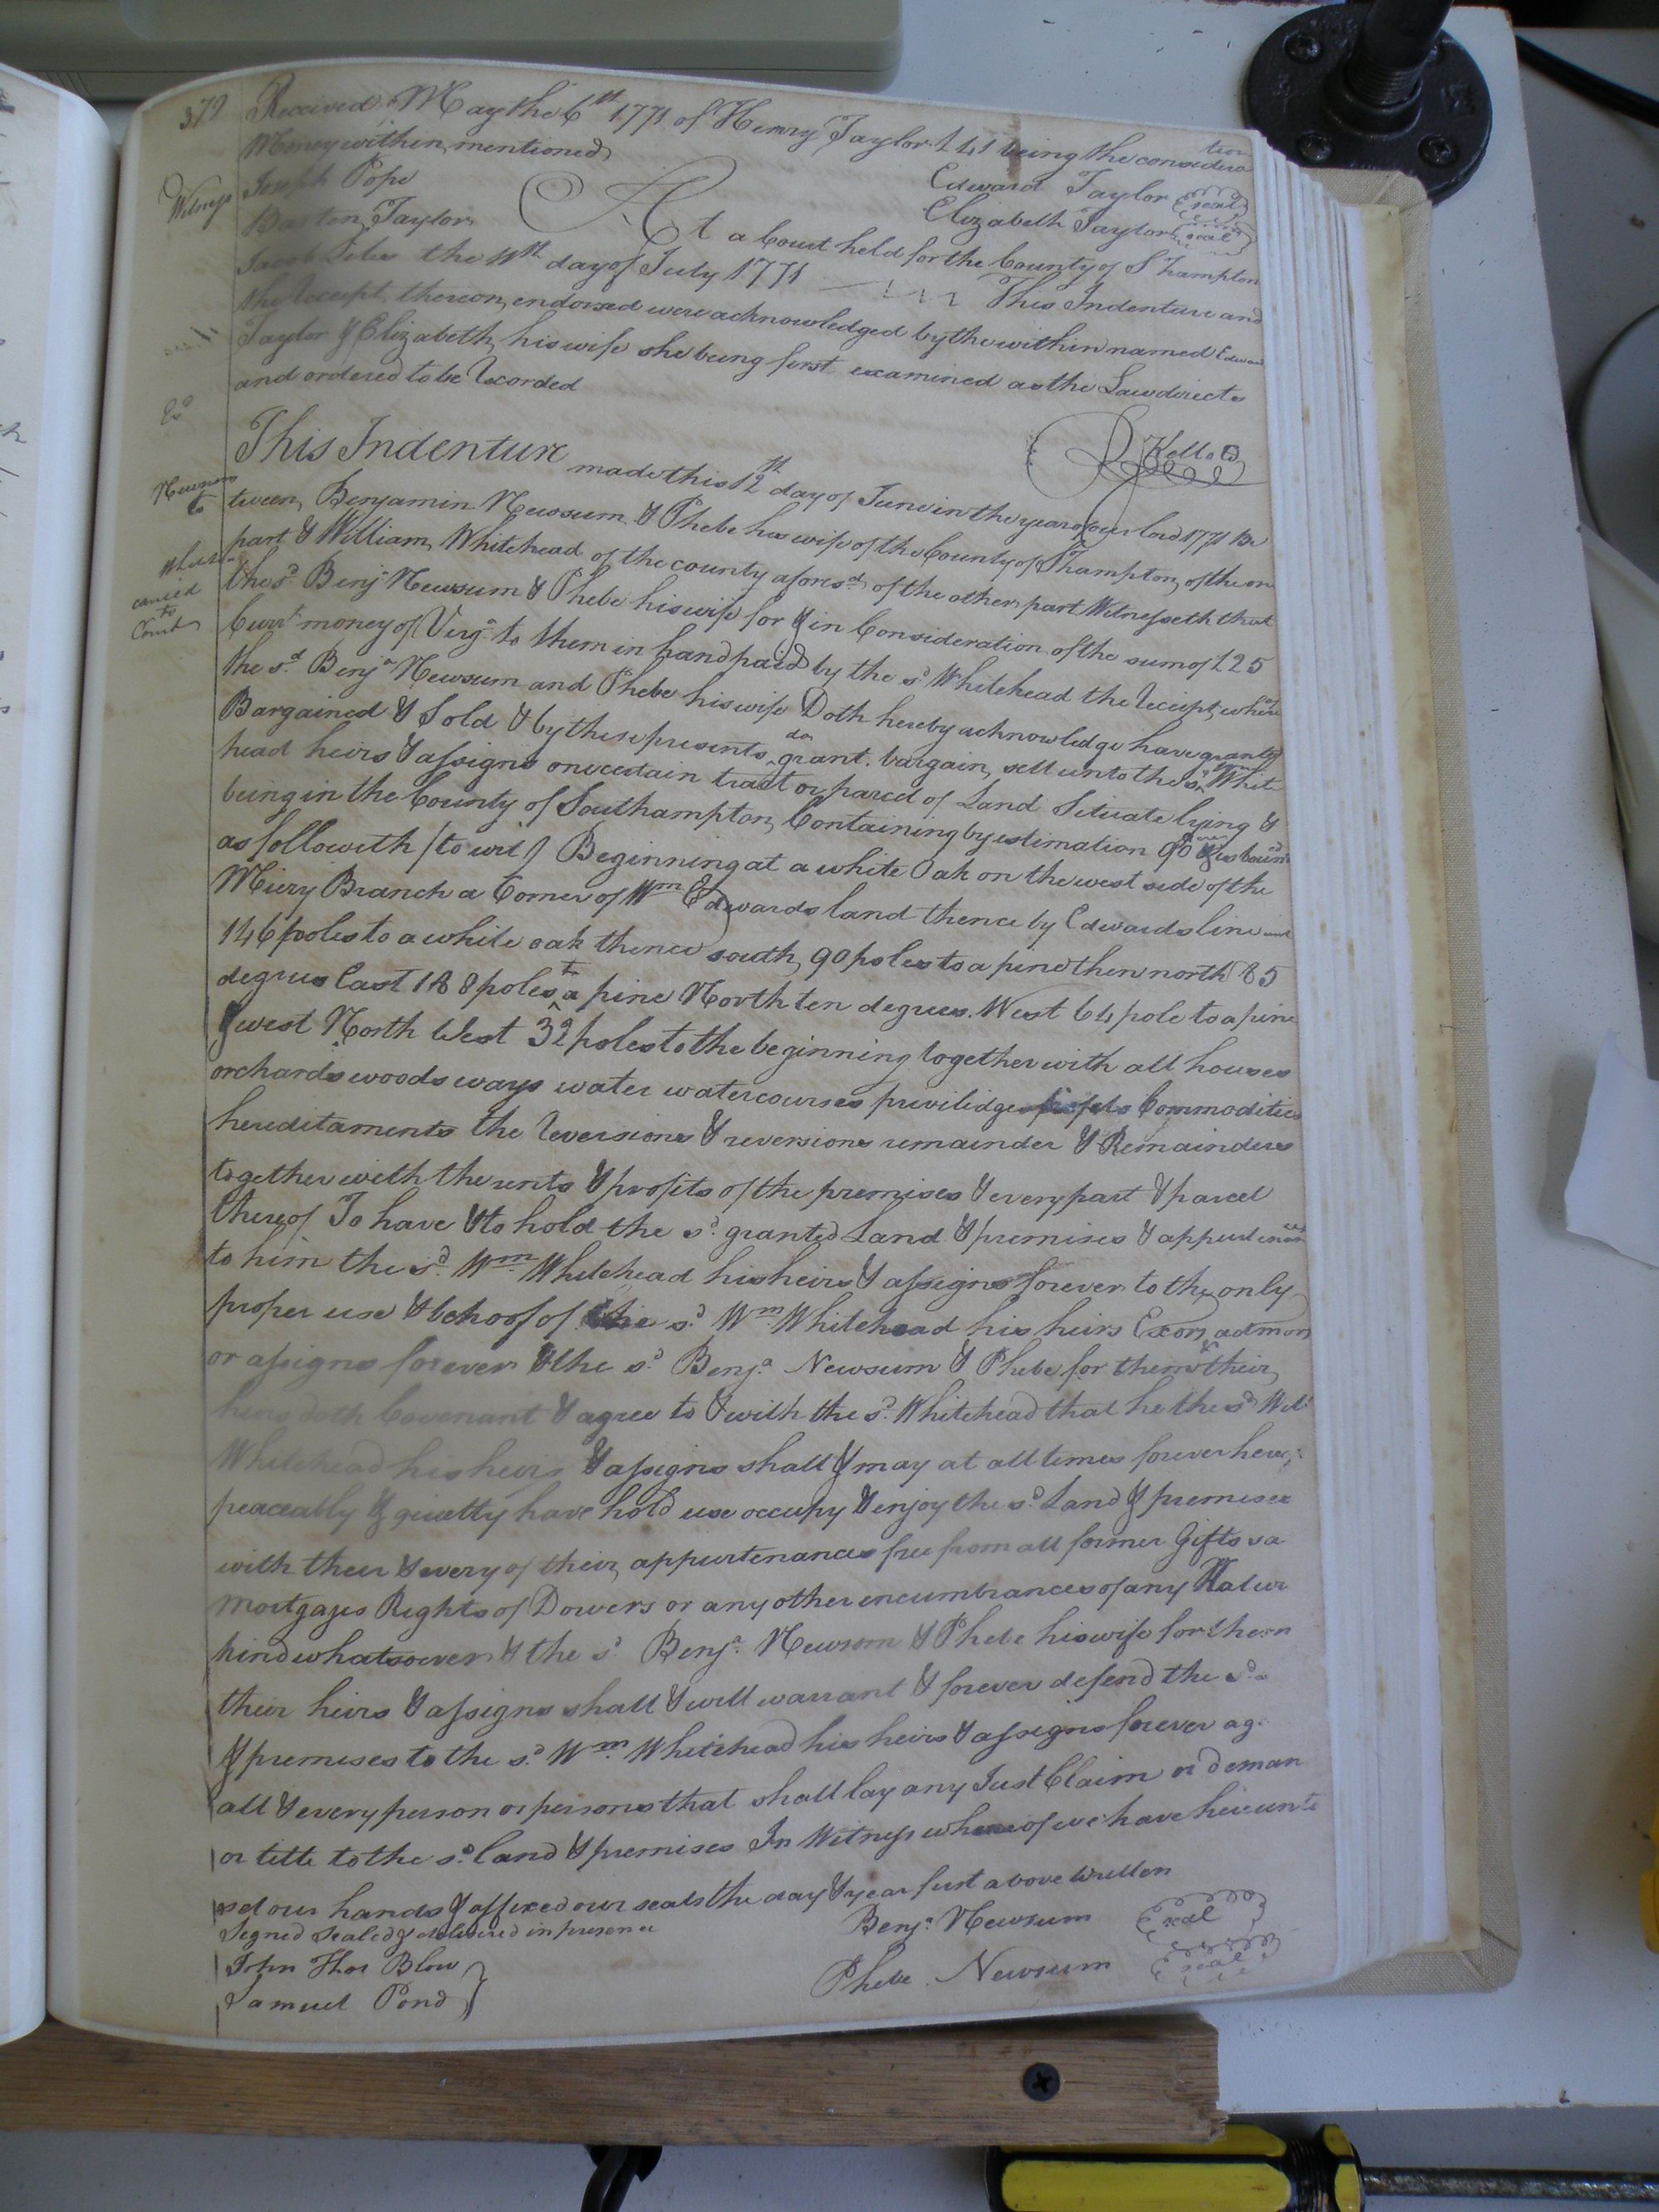 379
Received May the 6th 1771 of Henry Taylor £41 being the considera
tion
Money within mentioned
Edward Taylor seal
Witness Joseph Pope
Elizabeth Taylor seal
Barton Taylor
At a Court held for the County of S'hampton
Jacob the 11th day of July 1771 This Indenture and
the Receipt thereon endorsed were acknowledged by the within named Edward
Taylor & Elizabeth his wife she being first examined as the Law directs
and ordered to be Recorded
Exd
R Kello CC
Newsum
to
White
carried
to
Court
This Indenture made this 12th day of June in the year of our lord 1771 Be
tween Benjamin Newsum & Phebe his wife of the County of S'hampton of the one
part & William Whitehead of the county aforesd of the other part Witnesseth that
the sd Benja Newsum & Phebe his wife for & in Consideration of the sum of £25
Curr money of Virga to them in hand paid by the sd Whitehead the Receipt where
the sd Benja Newsum and Phebe his wife Doth hereby acknowledge have granted
Bargained & Sold & by these presents do grant bargain sell unto the sd White
head heirs & assigns one certain tract or parcel of Land Situate lying &
being in the County of Southampton Containing by estimation 90 bound
as followith (to wit) Beginning at a white Oak on the west side of the
Miery Branch a Corner of Wm Edwards land thence by Edwards line
146 poles to a white oak thence south 90 poles to a pine then north 85
degrees East 188 poles to a pine North ten degrees West 64 pole to a pine
& west North West 32 poles to the beginning together with all houses
orchards woods ways water watercourses priviledges Commodities
hereditaments the Reversions & reversions remainder & Remainders
together with the rents & profits of the premises & every part & parcel
thereof To have & to hold the sd granted Land & premises & appurtenances
to him the sd Wm Whitehead his heirs & assigns forever to the only
proper use & behoof of the sd Wm Whitehead his heirs Exors admors
or assigns forever & the sd Benja Newsum & Phebe for them & their
heirs doth Covenant & agree to & with the sd Whitehead that he the sd Wil
Whitehead his heirs & assigns shall & may at all times forever here
peaceably & quietly have hold use occupy & enjoy the sd Land & premises
with their & every of their appurtenances free from all former Gifts sa
mortgages Rights of Dowers or any other encumbrances of any Natur
kind whatsoever & the sd Benja Newsom & Phebe his wife for them
their heirs & assigns shall & will warrant & forever defend the sd
& premises to the sd Wm Whitehead his heirs & assigns forever ag
all & every person or persons that shall lay any Just Claim or deman
or title to the sd land & premises In Witness whereof we have hereunto
set our hands & affixed our seals the day & year first above written
Signed Sealed & delivered in presence
Benja Newsum seal
John Thos Blow
Phebe Newsum seal
Samuel Pond